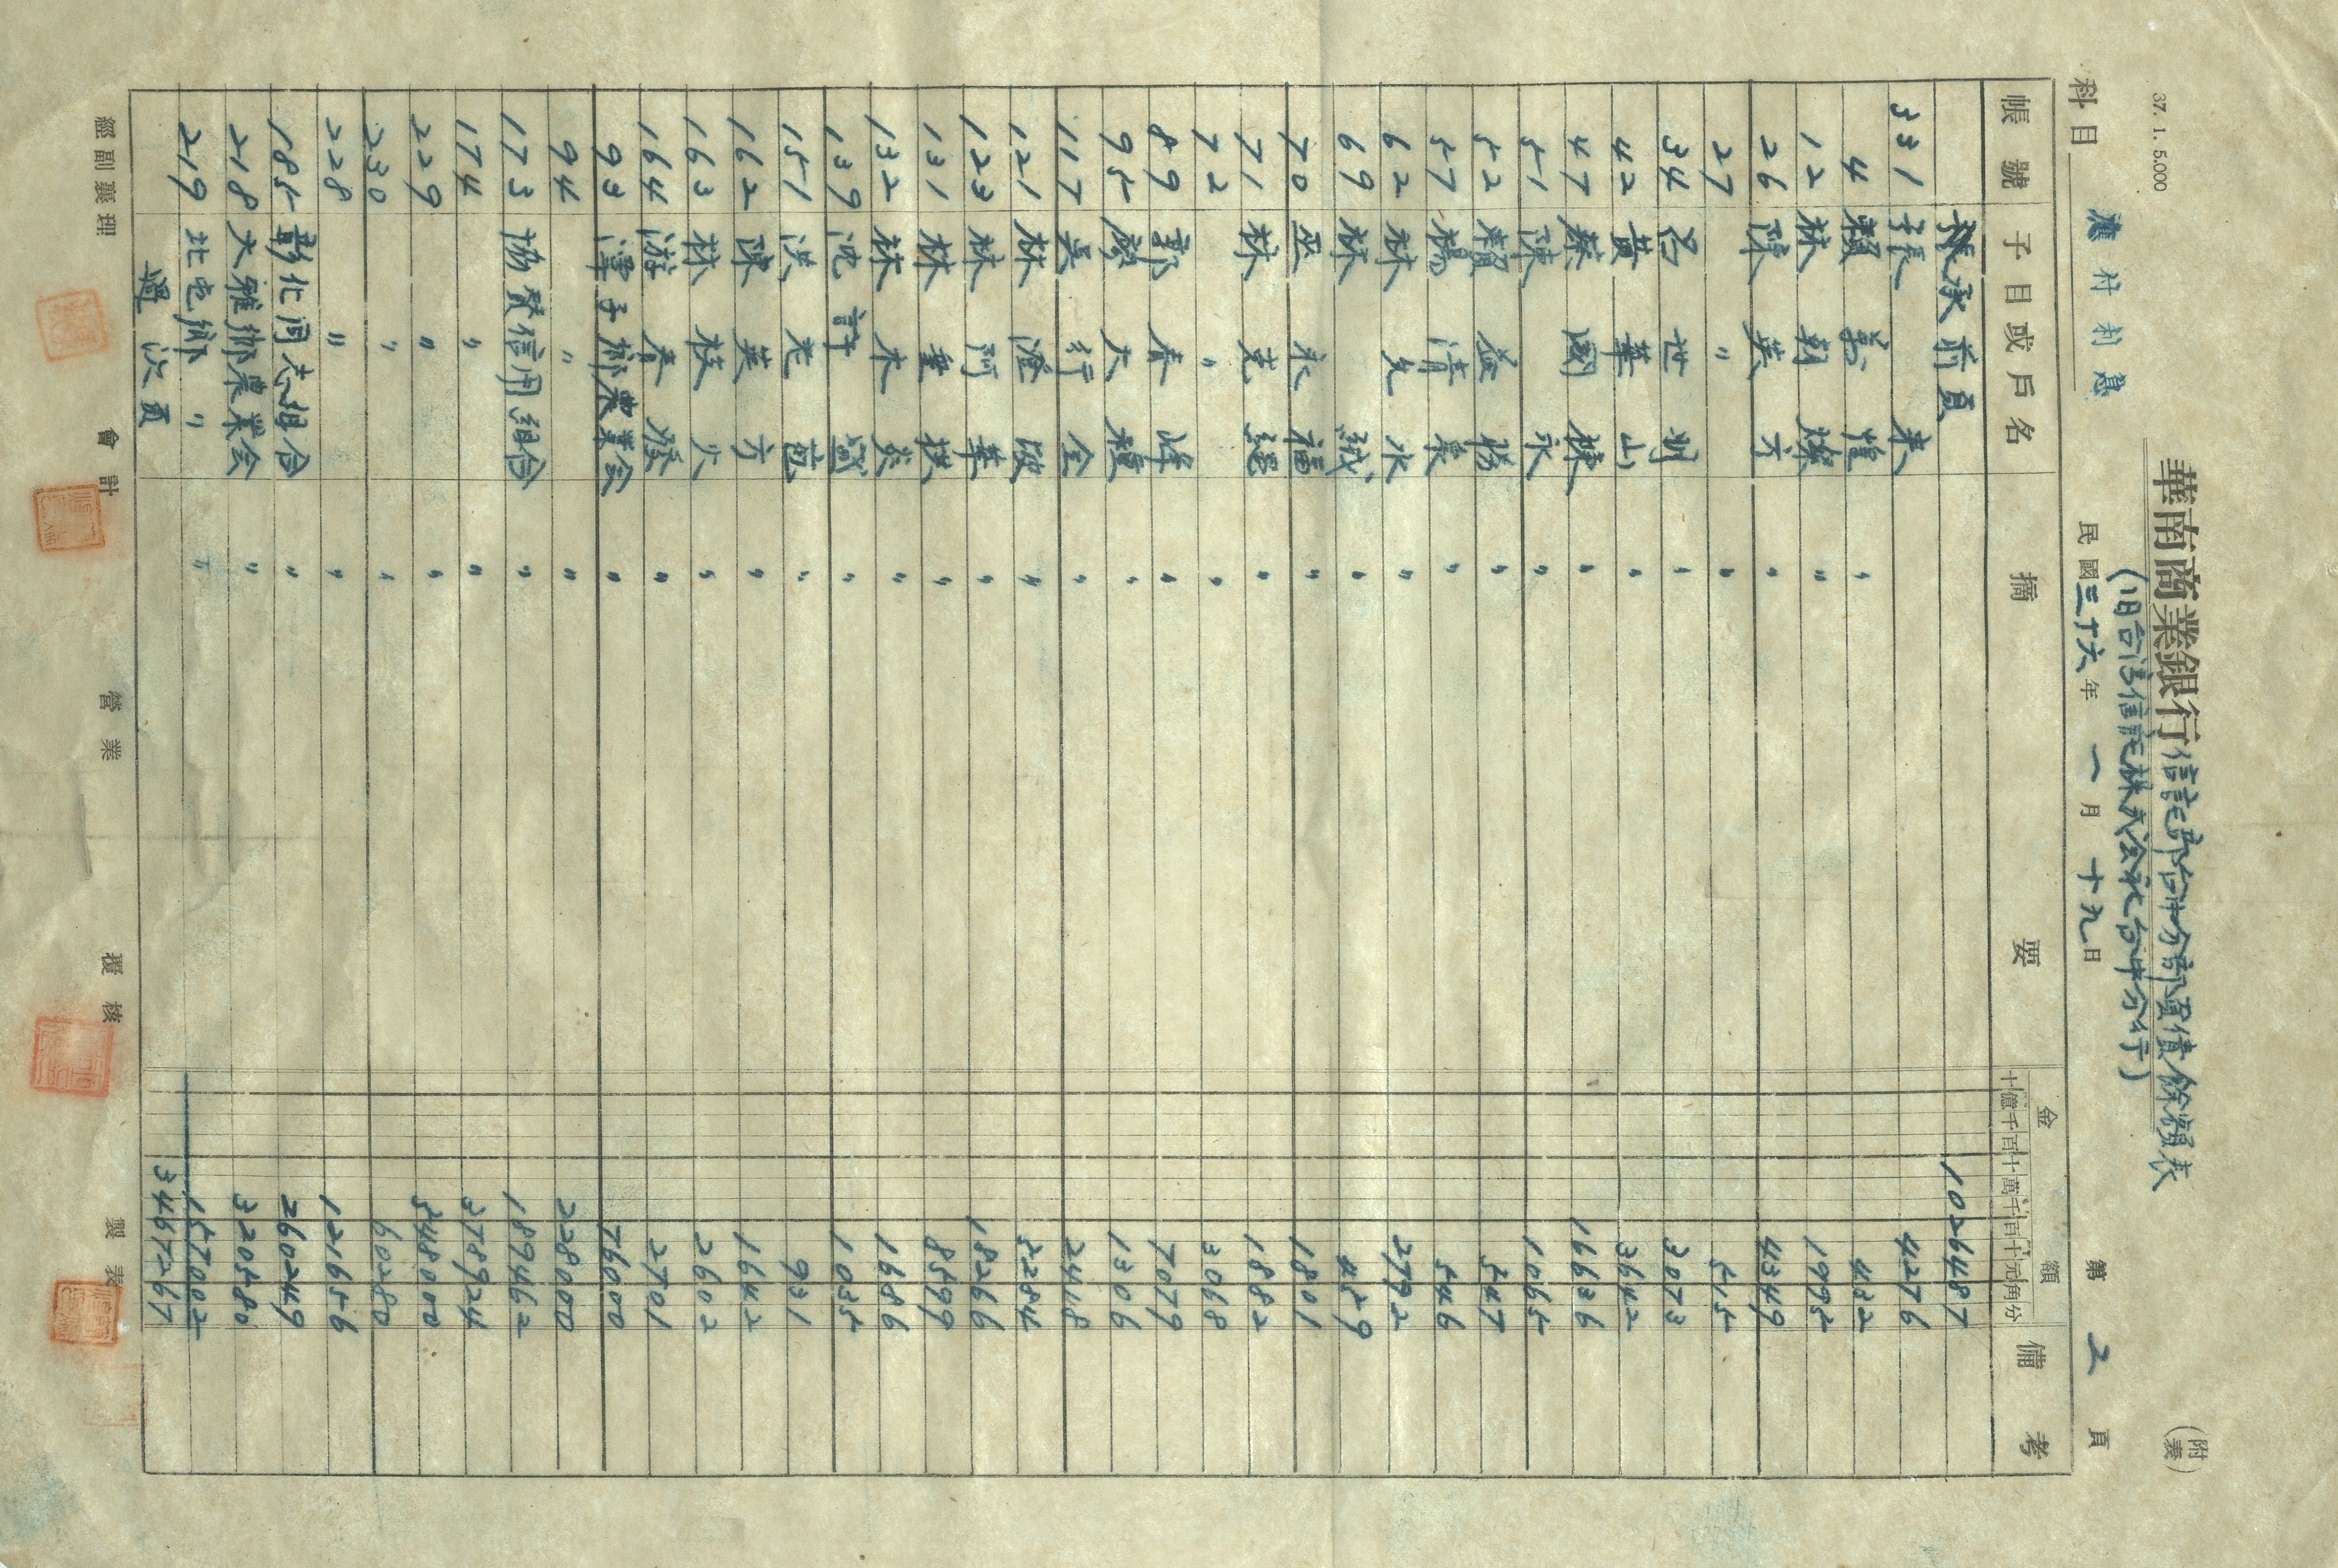 37. 1. 5.000
(附表)
華南商業銀行信託部台中分部負債餘額表
(旧台湾信託株式会社台中分行)
科目 應付利息
民國三十六年 一月 十九日
第 2 頁
帳號 子目或戶名 摘要 金額 備考
十億千百十萬千百十元角份
承前頁 1026487
331 張 春 4276
4 賴 煌 〃 432
12 林朝燦 〃 1995
26 陳英方 〃 4349
27 〃 〃 515
34 呂世明 〃 3073
42 黃華山 〃 3642
47 蔡國棟 〃 16636
51 陳永 〃 1065
52 賴益勝 〃 547
57 楊清泉 〃 546
62 林允水 〃 2792
69 林 鐵 〃 459
70 巫永福 〃 1801
71 林克繩 〃 1882
72 〃 〃 3068
89 郭春輝 〃 7079
95 廖大權 〃 1306
117 吳行全 〃 2418
121 林澄波 〃 5284
123 林阿華 〃 18266
131 林垂拱 〃 8599
132 林木炎 〃 1686
139 沈許盛 〃 1035
151 洪老 〃 931
162 陳英方 〃 1642
163 林 〃 2602
164 游春發 〃 2701
93 潭子鄉農業会 〃 76000
94 〃 〃 228000
173 協贊信用組合 〃 189462
174 〃 〃 378924
229 〃 〃 548000
230 〃 〃 60280
228 〃 〃 121656
185 彰化同志組合 〃 260249
218 大雅鄉農業会 〃 320580
219 北屯鄉 〃 〃 157002
過次頁 3467267
經副襄理 會計 營業 覆核 製表